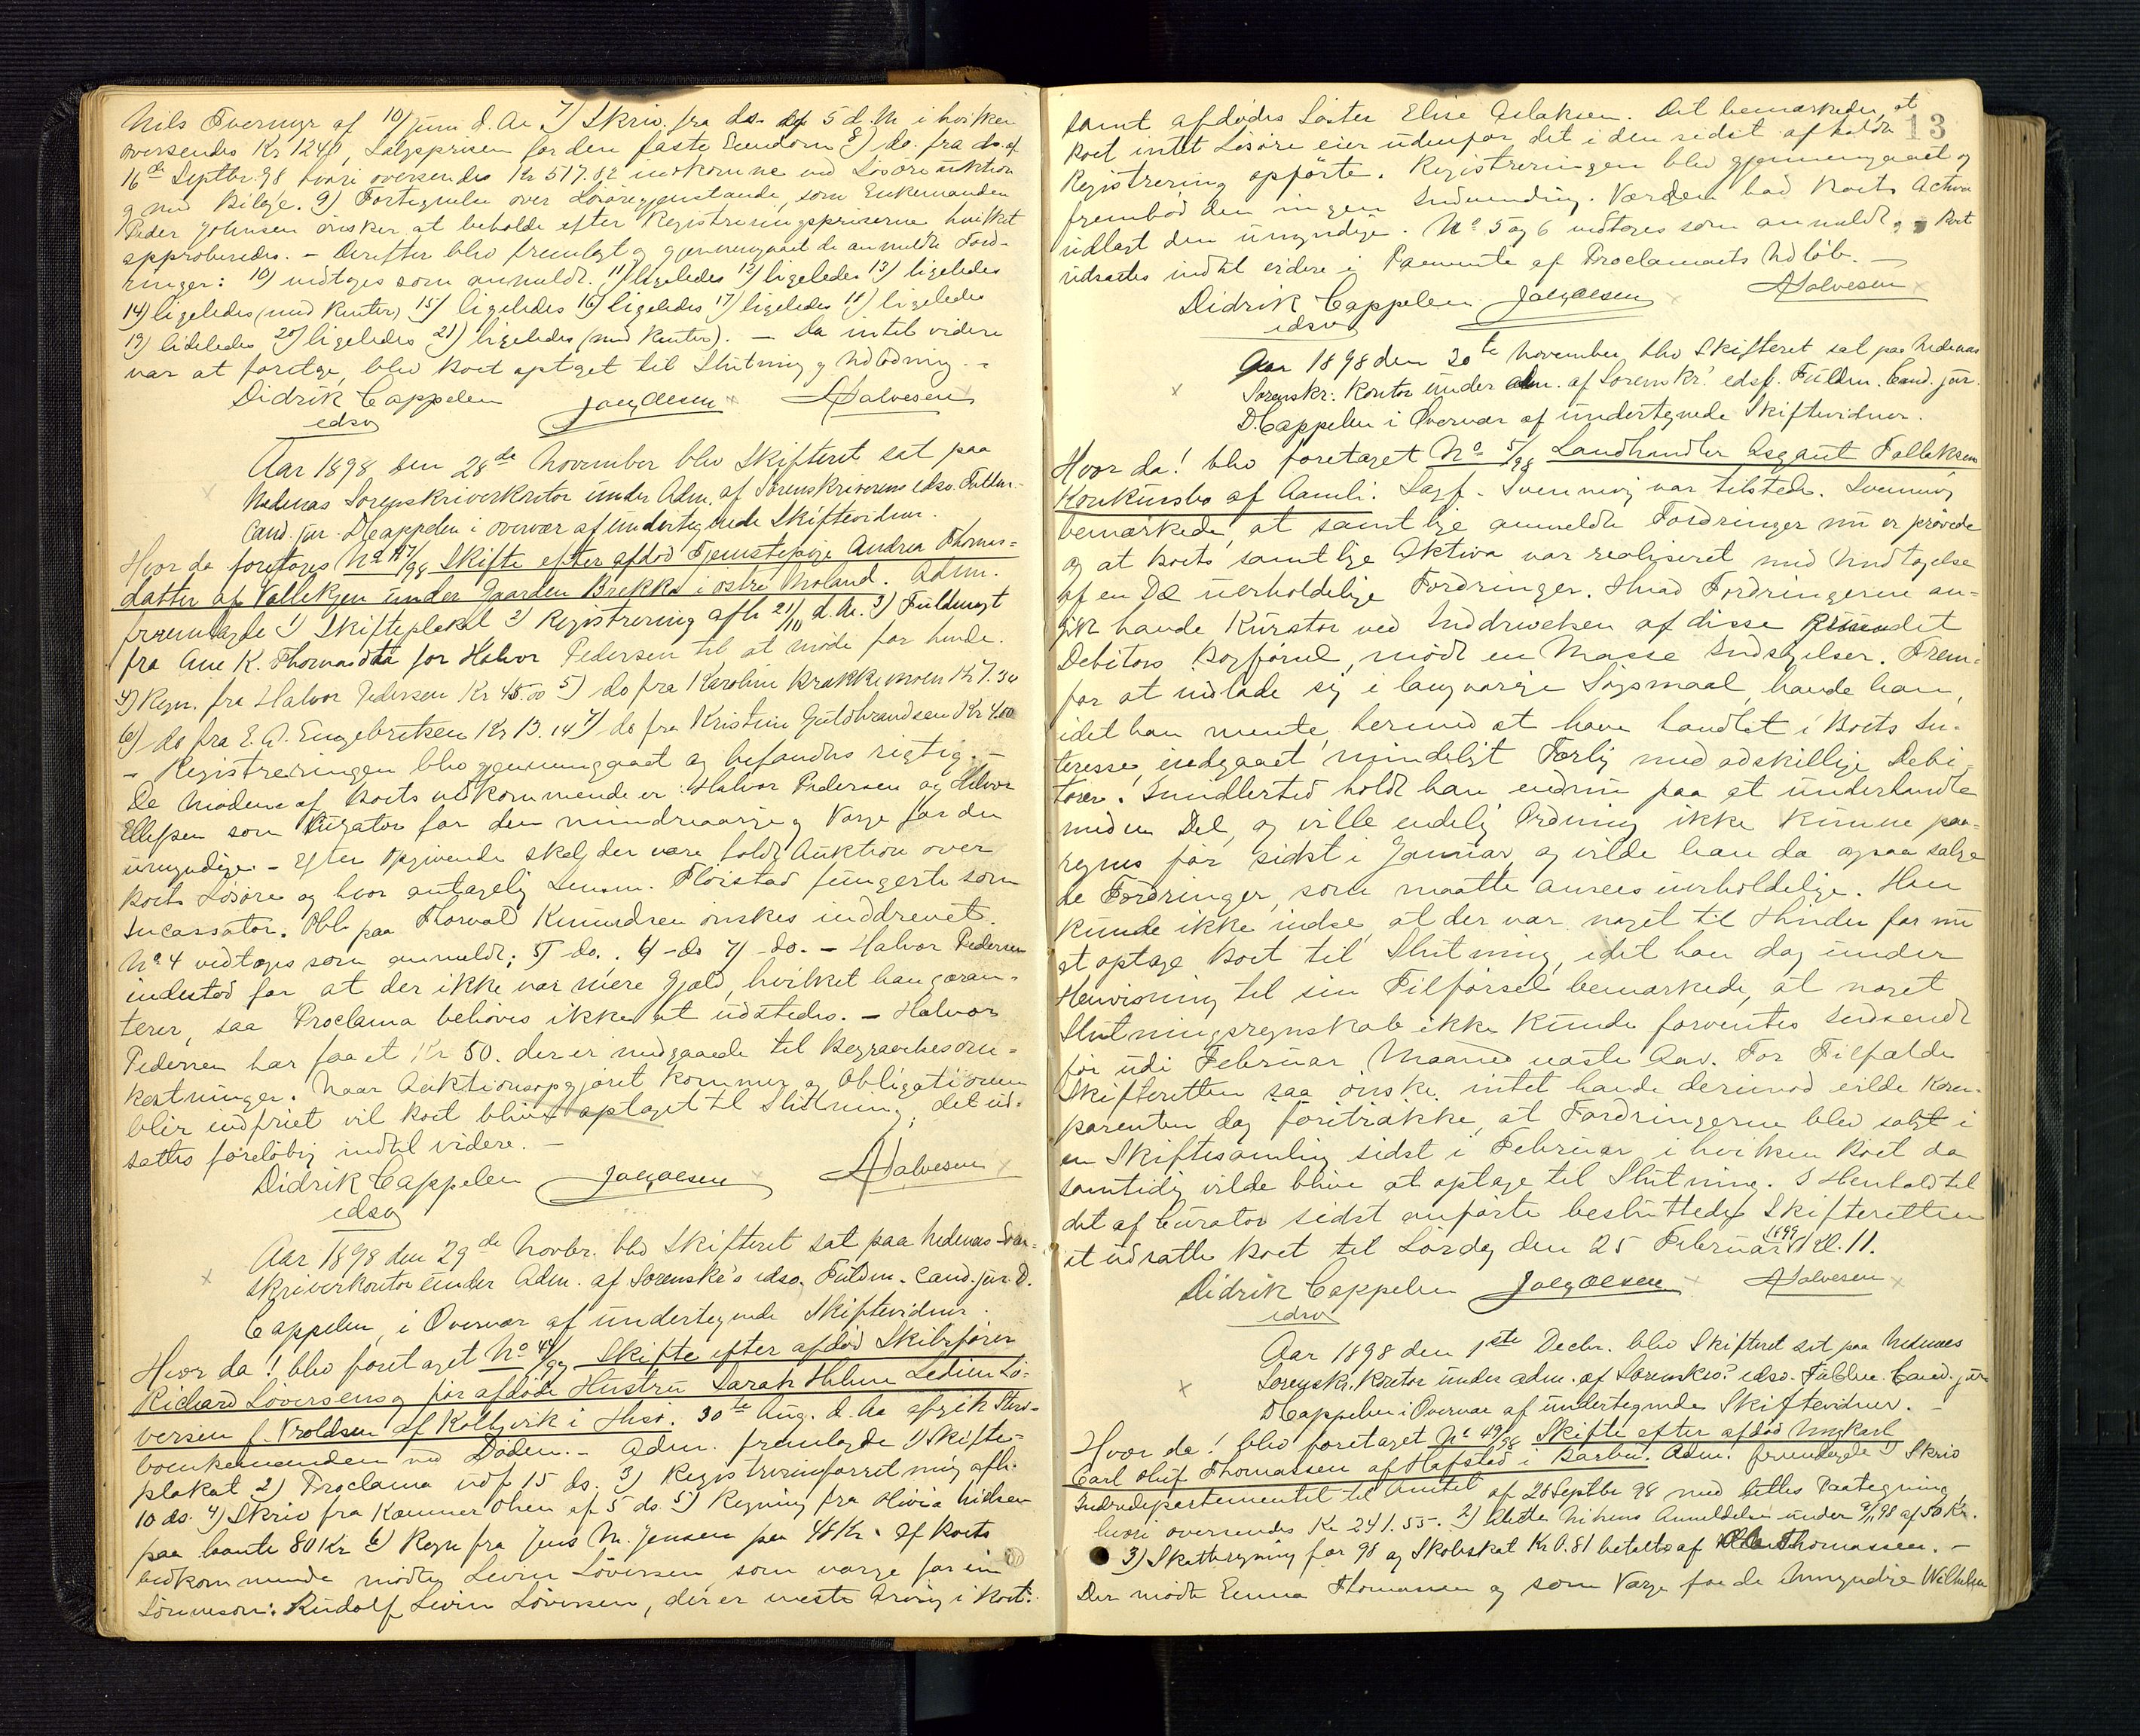 Nils Tvermyr af 10/ Juni d. Aa 7) Skriv. fra ds. af 5 d. M. i hvilken
oversendes Kr 1240, Salgsprisen for den faste Eiendom 8) do. fra ds. af
16de Septbr. 98 hvori oversendes Kr 517.82 indkomne ved Lösöreauktion
g med Bilage. 9) Fortegnelse over Lösöregjenstande, som Enkemanden
Peder Johnsen önsker at beholde efter Registreringspriserne hvilket
approberedes. – Derefter blev fremlagt og gjennemgaaet de anmeldte Ford-
ringer: 10) vedtoges som anmeldt. 11) ligeledes 12) ligeledes 13) ligeledes
14) ligeledes (med Renter) 15) ligeledes 16) ligeledes 17) ligeledes 18) ligeledes
19) lideledes 20) ligeledes 21) ligeledes (med Renter). – Da intet videre
var at foretage, blev Boet optaget til Slutning og Udlodning. –
Didrik Cappelen Joh. Olsen A Halvorsen
edsv
Aar 1898 den 28de November blev Skifteret sat paa
Nedenæs Sorenskriverkontor under Adm. af Sorenskriverens edsv. Fuldm.
Cand. jur. D Cappelen i overvær af undertegnede Skiftevidner.
Hvor da foretoges No 47/98 Skifte efter afdöd Tjenestepige Andrea Thomas-
datter af Vallekjen under Gaarden Brekka i östre Moland. Adm.
fremlagde 1) Skifteplakat 2) Registrering afh 21/11 d. A. 3) Fuldmagt
fra Ane K. Thomasdtr for Halvor Pedersen til at möde for hende.
4) Regn. fra Halvor Pedersen Kr 45.00 5) do fra Karoline Krakkemoen Kr 7.30
6) do fra E. A. Engebretsen Kr 13.14 7) do fra Kristine Guldbrandsen Kr 4.00
– Registreringen blev gjennemgaaet og befandtes rigtig. –
De mödende af Boets vedkommende er: Halvor Pedersen og Halvor
Ellefsen som Kurator for den mindreaarige og Værge for den
umyndige. – Efter Opgivende skal der være holdt Auktion over
Boets Lösöre og hvor antagelig Lensm. Flöistad fungerte som
Incassator. Obl. paa Thorvald Knudsen önskes inddrevet.
No 4 vedtoges som anmeldt; 5) do. . 6) – do 7) – do. – Halvor Pedersen
indestod for at der ikke var mere Gjæld, hvilket han garan-
terer, saa Proclama behöves ikke at udstedes. – Halvor
Pedersen har faaet Kr 50. der er medgaaede til Begravelsesom-
kostninger. Naar Auktionsopgjöret kommer og Obligationen
blir indfriet vil Boet blive optaget til Slutning; det ud-
sattes forelöbig indtil videre. –
Didrik Cappelen Joh. Olsen A Halvorsen
edsv
Aar 1898 den 29de Novbr. blev Skifteret sat paa Nedenæs Soren-
skriverkontor under Adm. af Sorenskr's edsv. Fuldm. Cand. jur. D.
Cappelen, i Overvær af undertegnede Skiftevidner.
Hvor da! blev foretaget No 48/98 Skifte efter afdöd Skibsförer
Richard Löversen og för afdöde Hustru Sarah Helene Ledien Lö-
versen f. Vroldsen af Kolbjvik i Hisö. 30te Aug. d. Aa afgik Stær-
boenkemanden ved Döden. – Adm. fremlagde 1) Skifte-
plakat 2) Proclama udf. 15 ds. 3) Registreringsforretning afh.
10 ds. 4) Skriv fra Kæmner Olsen af 5 ds 5) Regning fra Olivia Nilsen
paa bante 80 Kr 6) Regn fra Jens N. Jensen paa 48 Kr. Af Boets
vedkommende mödte Levin Löversen, som værge for sin
Sönneson: Rudolf Levin Löversen, der er meste Arving i Boet:
13
samt afdödes Söster Elise Aslaksen. Det bemærkedes, at
Boet intet Lösöre eier udenfor det i den sidst afholdte
Registrering opförte. Registreringen blev gjennemgaaet og
fremböd den ingen Indvending. Værgen bad Boets Activa
udlagt den umyndige. No 5 og 6 vedtoges som anmeldt. Boet
udsattes indtil videre i Paavente af Proclamaets Udlöb. –
Didrik Cappelen Joh. Olsen A Halvorsen
edsv
Aar 1898 den 30te November blev Skifteret sat paa Nedenæs
Sorenskr. Kontor under Adm. af Sorenskr's edsv. Fuldm. Cand. jur.
D. Cappelen i Overvær af undertegnede Skiftevidner.
Hvor da! blev foretaget No 5/98 Landhandler Asgaut Tallaksens
Konkursbo af Aamli. Sagf. Svenning var tilstede. Svenning
bemærkede, at samtlige anmeldte Fordringer nu er prövede
og at Boets samtlige Aktiva var realiseret med Undtagelse
af en Del uerholdelige Fordringer. Hvad Fordringerne an-
gik havde Kurator ved Inddrivelsen af disse
Debitors Bogförsel, mödt en Masse Indsigelser. Frem-
for at indlade sig i langvarige Sögsmaal, havde han,
idet han mente, hermed at have handlet i Boets In-
teresse, indgaaet mindeligt Forlig med adskillige Debi-
torer. Imidlertid holdt han endnu paa at underhandle
med en Del, og ville endelig Ordning ikke kunne paa-
regnes för sidst i Januar, og vilde han da ogsaa sælge
de Fordringer, som maatte ansees uerholdelige. Han
kunde ikke indse, at der var noget til Hinder for nu
at optage Boet til Slutning, idet han dog under
Henvisning til sin Tilförsel bemærkede, at noget
Slutningsregnskab ikke kunde forventes Indsendt
för udi Februar Maaned næste Aar. For Tilfælde
Skifteretten saa önske intet havde derimod vilde Kom-
parenten dog foretrække, at Fordringerne blev solgt i
en Skiftesamling sidst i Februar i hvilken Boet da
samtidig vilde blive at optage til Slutning. I Henhold til
det af Curator sidst anförte besluttede Skifteretten
at udsætte Boet til Lördag den 25 Februar 1899 Kl. 11.
Didrik Cappelen Joh. Olsen A Halvorsen
edsv
Aar 1898 den 1ste Decbr. blev Skifteret sat paa Nedenæs
Sorenskr. Kontor under adm. af Sorenskrs edsv. Fuldm. Cand. jur.
D Cappelen i Overvær af undertegnede Skiftevidner. –
Hvor da! blev foretaget No 49/98 Skifte efter afdöd Ungkarl
Carl Oluf Thomassen af Hafstad i Barbu. Adm. fremlagde 1) Skriv
Indredepartementet til Amtet af 28 Septbr 98 med dettes Paategning
hvori oversendes Kr 241.55. 2) Mette Nilsens Anmeldelse under 9/11 98 af 50 Kr.
3) Skatteregning for 98 og Skolskat Kr 0.81 betalt af Thomassen. –
Der mödte Emma Thomassen og som Værge for de Umyndige Wilhelm